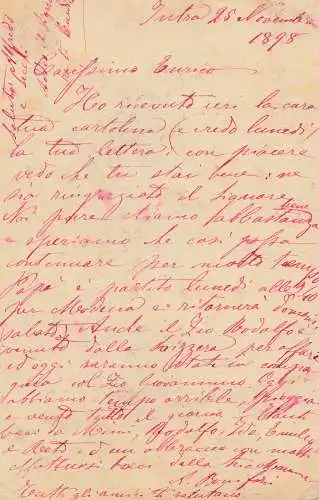 Intra 25 Novembre
1898
Carissimo Enrico
Ho ricevuto ieri la cara
tua cartolina (e credo lunedì
la tua lettera) con piacere
vedo che tu stai bene: ne
sia ringraziato il Signore
Noi pure stiamo abbastanza bene
e speriamo che così possa
continuare per molto tempo
Papà è partito lunedì alle
per Modena e ritornerà domani,
sabato. Anche il Zio Rodolfo è
venuto dalla Svizzera per affari
ed oggi saranno stati in compa
gnia col Zio Giovannino. Oggi
abbiamo tempo orribile, pioggia
e vento tutto il giorno.
baci da Mimì, Rodolfo, Ida, Emilio
e ed un abbraccio con molti
affettuosi baci dalla
Bonifori
Tutti gli amici ti salutano
Saluta Alfredo